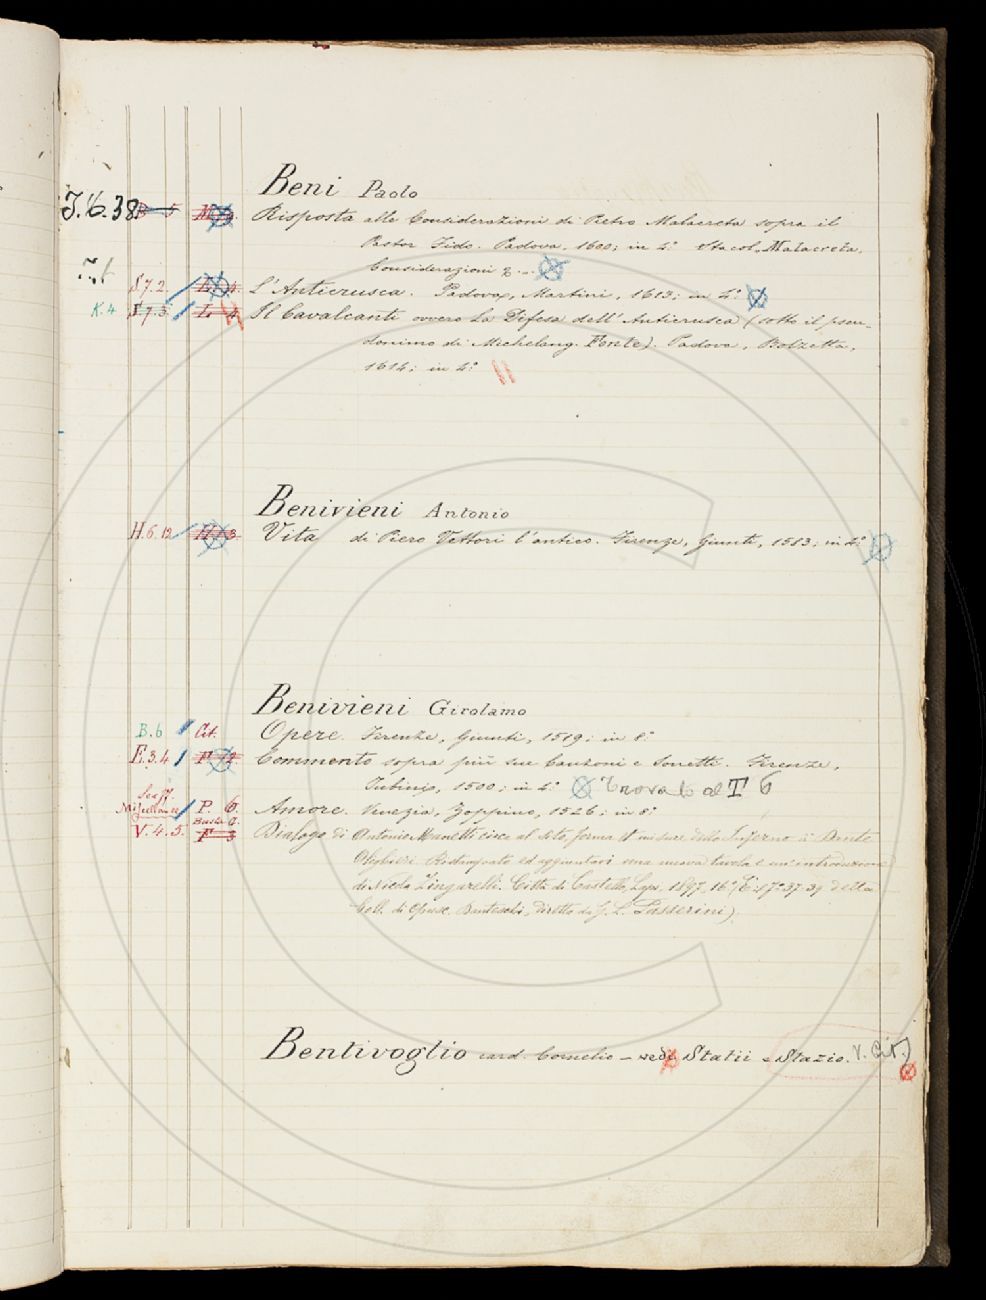 Beni Paolo
J. 6. 38. B 5 Risposta alle Considerazioni di Pietro Malacreta sopra il
Pastor Fido. Padova, 1600; in 4º Sta col. Malacreta,
Considerazioni
S 7. 2. L 4. L'Anticrusca. Padova, Martini, 1613; in 4º
K. 4 S 7. 3. L 4 Il Cavalcanti ovvero la Difesa dell'Anticrusca (sotto il pseu-
donimo di Michelang. Fonte). Padova, Bolzetta,
1614; in 4º
Benivieni Antonio
H. 6. 12 3 Vita di Piero Vettori l'antico. Firenze, Giunti, 1583; in 4º
Benivieni Girolamo
B. 6 Cit. Opere. Firenze, Giunti, 1519; in 8º
E. 3. 4 Commento sopra più sue Canzoni e Sonetti. Firenze,
Tubinj, 1500; in 4º Trovato al T 6
P. 6. Amore. Venezia, Zoppino, 1526; in 8º
Busta
V. 4. 5. F 3 Dialogo di Antonio Manetti circa al sito, forma et misure dello Inferno di Dante
Alighieri Ristampato ed aggiuntavi una nuova tavola e un'introduzione
di Nicola Zingarelli. Città di Castello, Lapi, 1897. 16º 37-39 della
Coll. di Opusc. Danteschi, diretta da G. L. Passerini).
Bentivoglio card. Cornelio – vedi Statii – Stazio. V. Cit.)